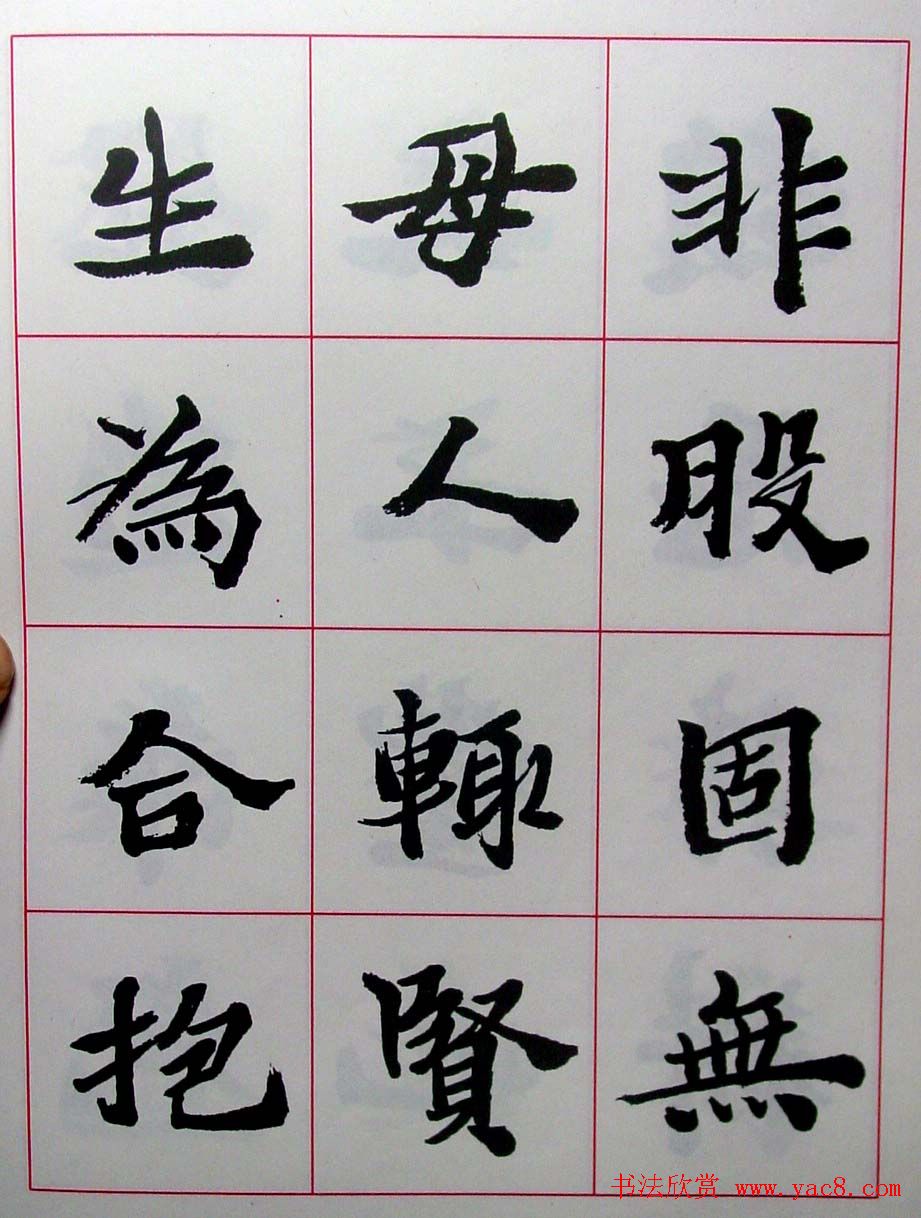 非股固無
母人輒賢
生為合抱
书法欣赏 www.yac8.com